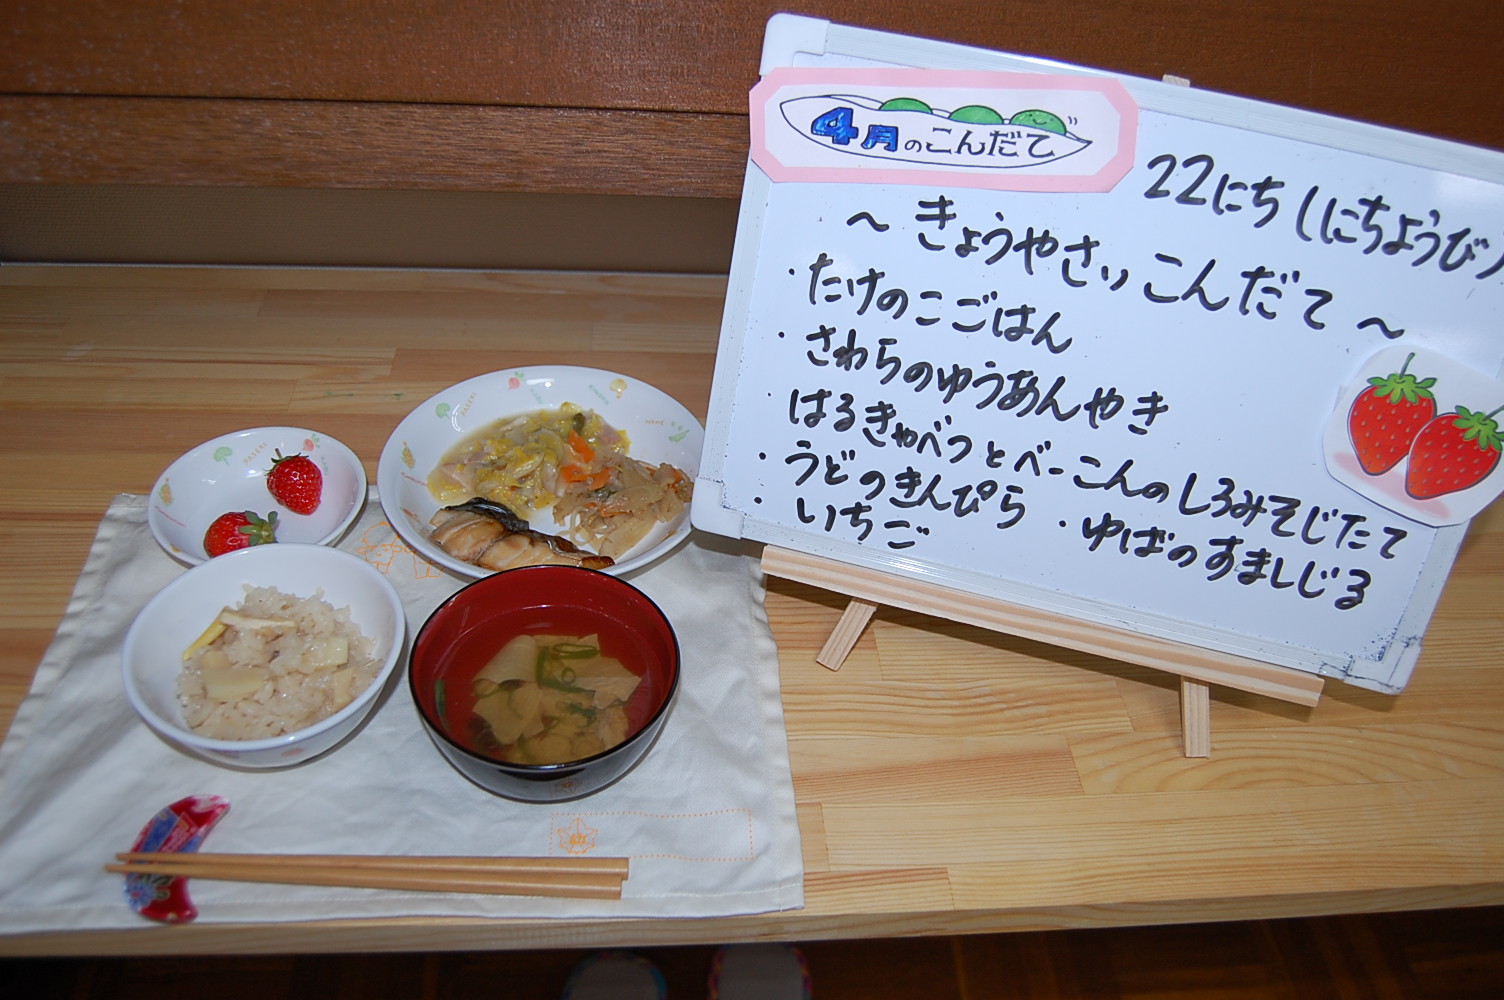 4月のこんだて
22にち(にちようび)
～きょうやさいこんだて～
・たけのこごはん
・さわらのゆうあんやき
・はるきゃべつとべーこんのしろみそじたて
・うどのきんぴら ・ゆばのすましじる
・いちご